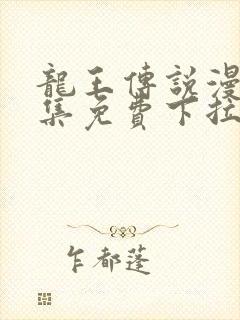 龍王傳說漫
集免費下拉
乍都蓬